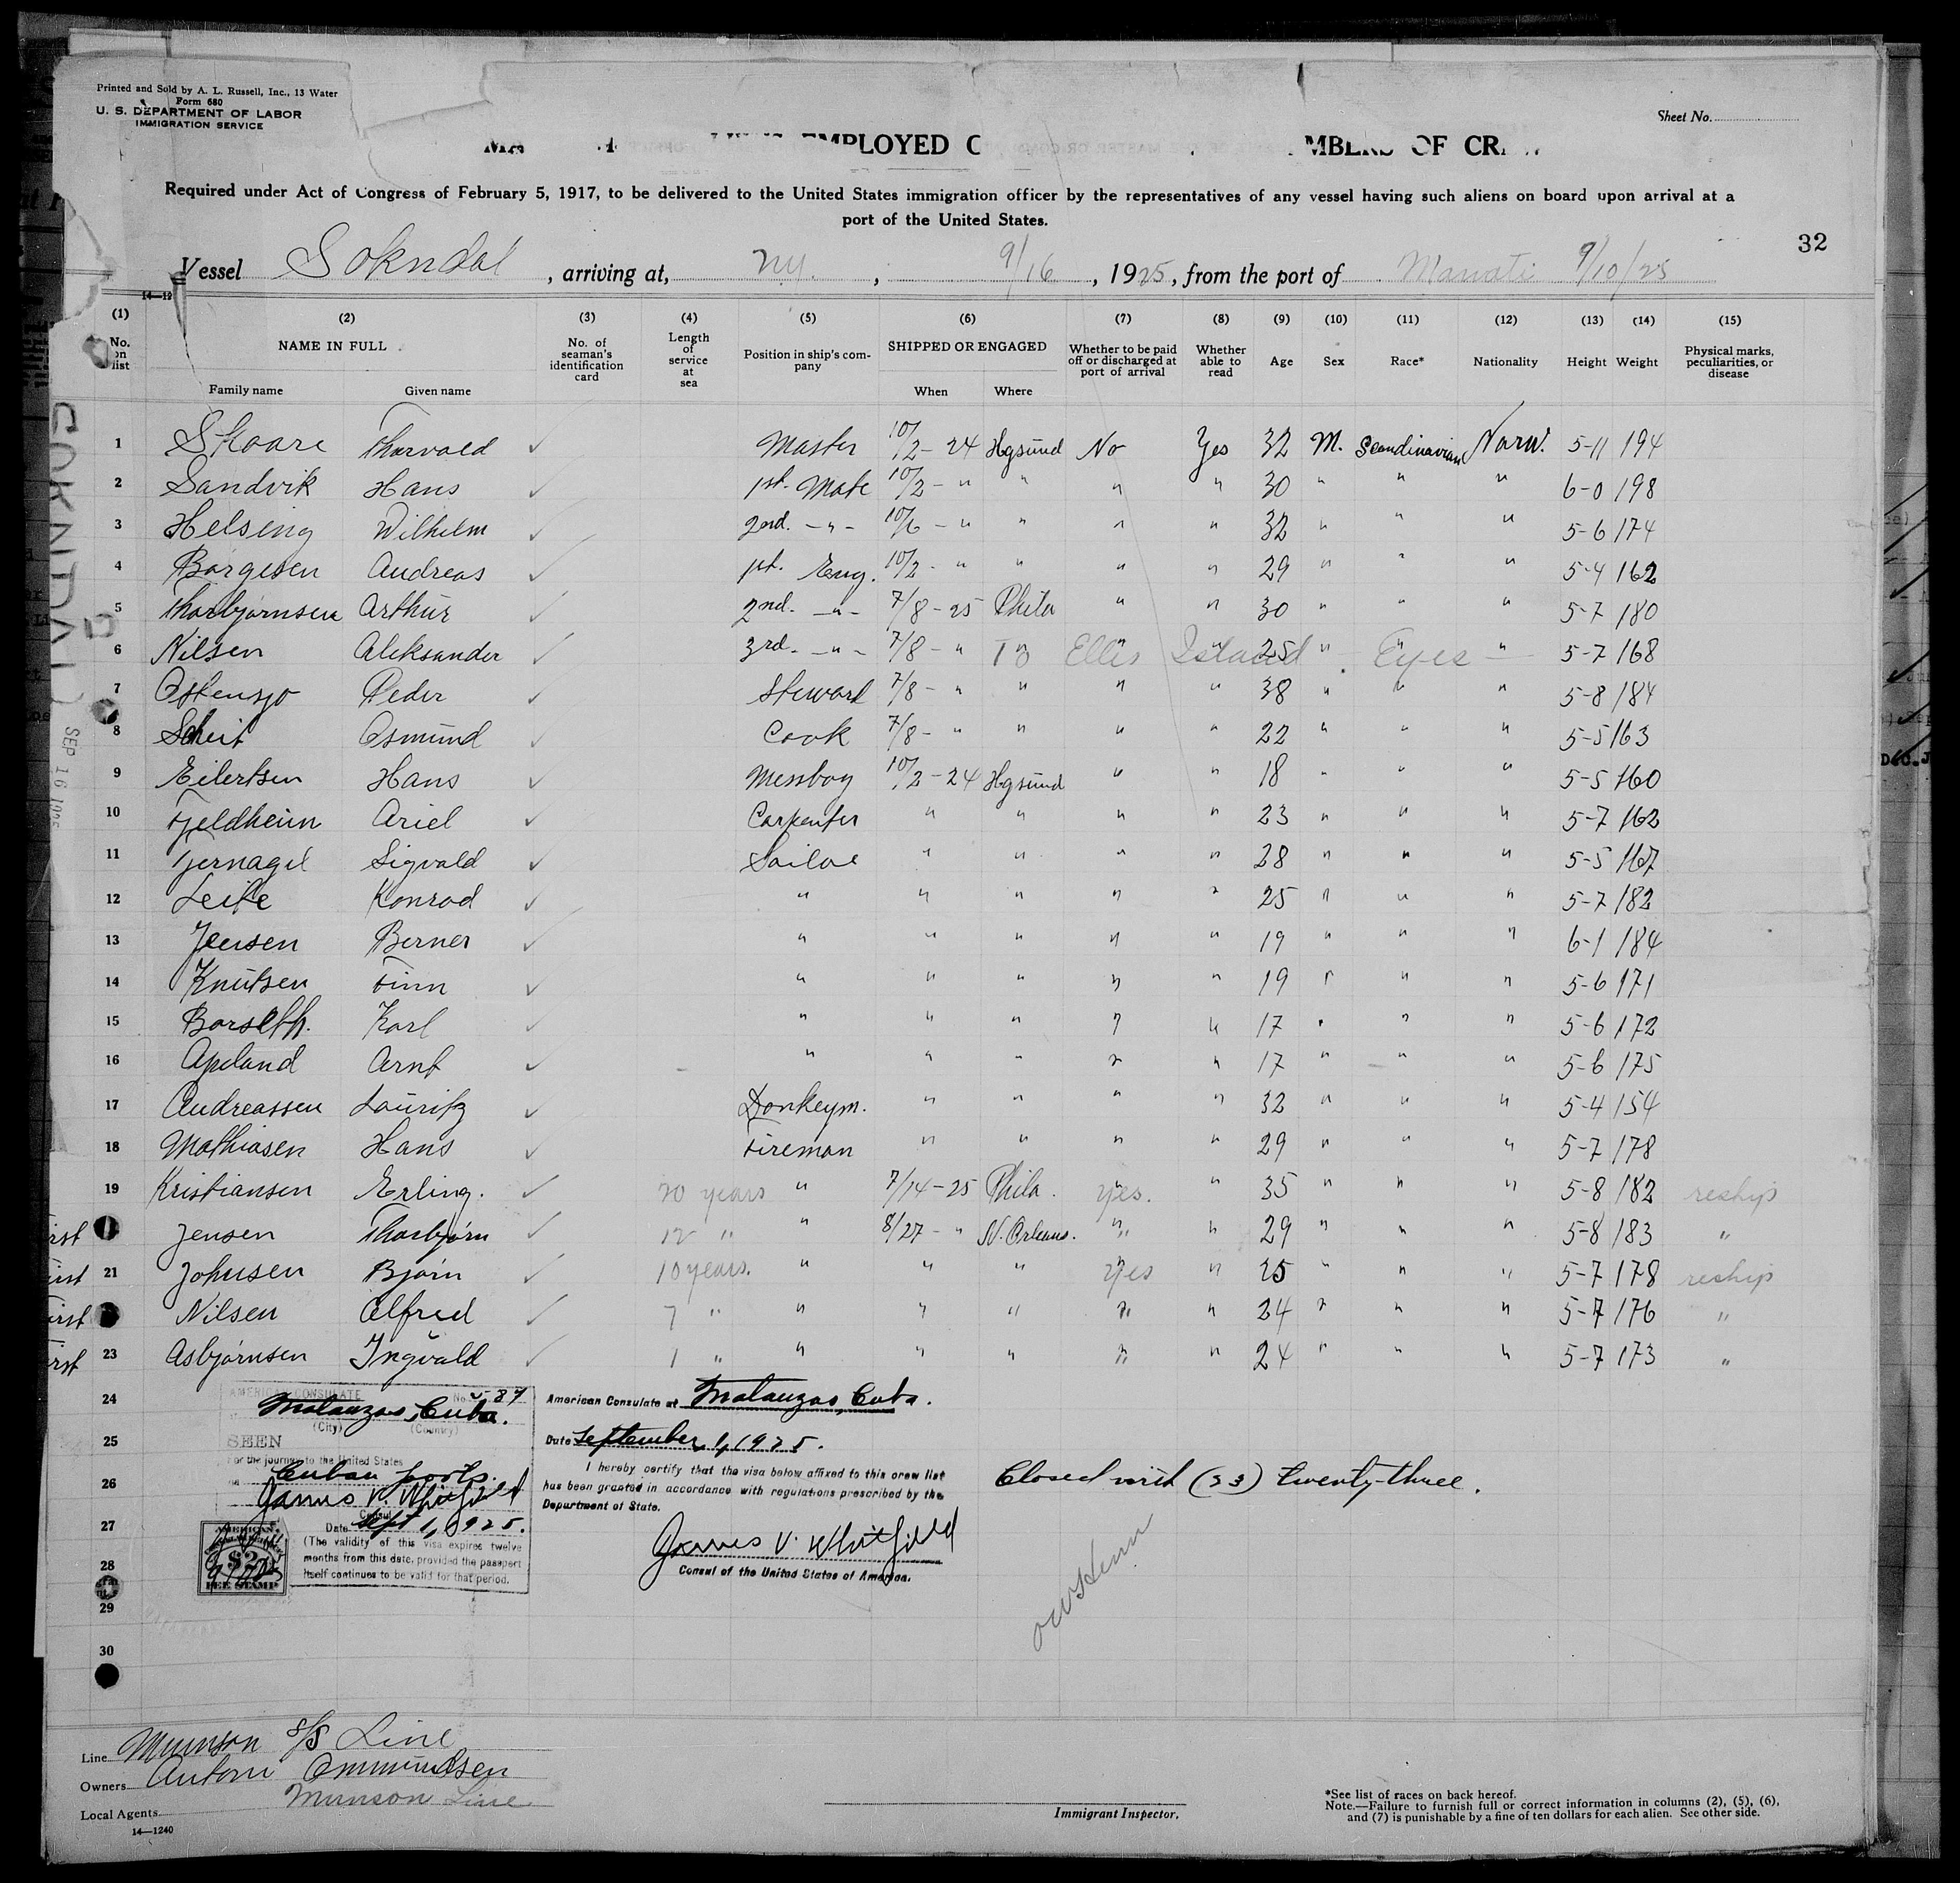 Printed and Sold by A. L. Russell, Inc., 13 Water
Form 680
U. S. DEPARTMENT OF LABOR
IMMIGRATION SERVICE
Sheet No.
EMPLOYED OF CR
Required under Act of Congress of February 5, 1917, to be delivered to the United States immigration officer by the representatives of any vessel having such aliens on board upon arrival at a
port of the United States.
32
Vessel Sokndal, arriving at, N.Y., 9/16, 1925, from the port of Manati 9/10/25
14—12
(1) (2) (3) (4) (5) (6) (7) (8) (9) (10) (11) (12) (13) (14) (15)
No. on list NAME IN FULL No. of seaman's identification card Length of service at sea Position in ship's company SHIPPED OR ENGAGED Whether to be paid off or discharged at port of arrival Whether able to read Age Sex Race* Nationality Height Weight Physical marks, peculiarities, or disease
Family name Given name When Where
1 Skoare Thorvald ✓ Master 10/2-24 Hgsund No Yes 32 M. Scandinavian Norw. 5-11 194
2 Sandvik Hans ✓ 1st. Mate 10/2- " " " " 30 " " " 6-0 198
3 Helsing Wilhelm ✓ 2nd. -"- 10/6- " " " " 32 " " " 5-6 174
4 Borgesen Andreas ✓ 1st. Eng. 10/2- " " " " 29 " " " 5-4 162
5 Thorbjornsen Arthur ✓ 2nd. -"- 7/8-25 Phila " " 30 " " " 5-7 180
6 Nilsen Aleksander ✓ 3rd. -"- 7/8- " " " " 25 " " 5-7 168
To Ellis Island - Eyes -
7 Ostensjo Peder ✓ Steward 7/8- " " " " 38 " " " 5-8 184
8 Osmund ✓ Cook 7/8- " " " " 22 " " " 5-5 163
9 Eilertsen Hans ✓ Messboy 10/2-24 Hgsund " " 18 " " " 5-5 160
10 Fjeldheim Ariel ✓ Carpenter " " " " 23 " " " 5-7 162
11 Sigvald ✓ Sailor " " " " 28 " " " 5-5 167
12 Leite Konrad ✓ " " " " " 25 " " " 5-7 182
13 Jensen Berner ✓ " " " " " 19 " " " 6-1 184
14 Knutsen Finn ✓ " " " " " 19 " " " 5-6 171
15 Borseth. Karl ✓ " " " " " 17 " " " 5-6 172
16 Apeland Arnt ✓ " " " " " 17 " " " 5-6 175
17 Andreassen Lauritz ✓ Donkeym. " " " " 32 " " " 5-4 154
18 Mathiasen Hans ✓ Fireman " " " " 29 " " " 5-7 178
19 Kristiansen Erling. ✓ 20 years " 7/14-25 Phila. yes. " 35 " " " 5-8 182 reship
Jensen Thorbjorn ✓ 12 " " 8/27- " N. Orleans. " " 29 " " " 5-8 183 "
21 Johnsen Bjorn ✓ 10 years. " " " Yes " 25 " " " 5-7 178 reship
Nilsen Alfred ✓ 7 " " " " " " 24 " " " 5-7 176 "
23 Asbjornsen Ingvald ✓ 1 " " " " " " 24 " " " 5-7 173 "
24
25
26
27
28
29
30
SOKNDAL
SEP 16 1925
AMERICAN CONSULATE No. 587
Matanzas, Cuba.
(City) (Country)
SEEN
For the journey to the United States
Cuban ports.
James V. Whitfield
Consul
Date Sept 1, 1925.
(The validity of this visa expires twelve
months from this date, provided the passport
itself continues to be valid for that period.
AMERICAN
$2
FEE STAMP
American Consulate at Matanzas, Cuba.
Date September 1, 1925.
I hereby certify that the visa below affixed to this crew list
has been granted in accordance with regulations prescribed by the
Department of State.
James V. Whitfield
Consul of the United States of America.
Closed with (23) twenty-three.
Line Munson S/S Line
Owners Anton Ommundsen
Local Agents Munson Line
14—1240
Immigrant Inspector.
*See list of races on back hereof.
Note.—Failure to furnish full or correct information in columns (2), (5), (6),
and (7) is punishable by a fine of ten dollars for each alien. See other side.